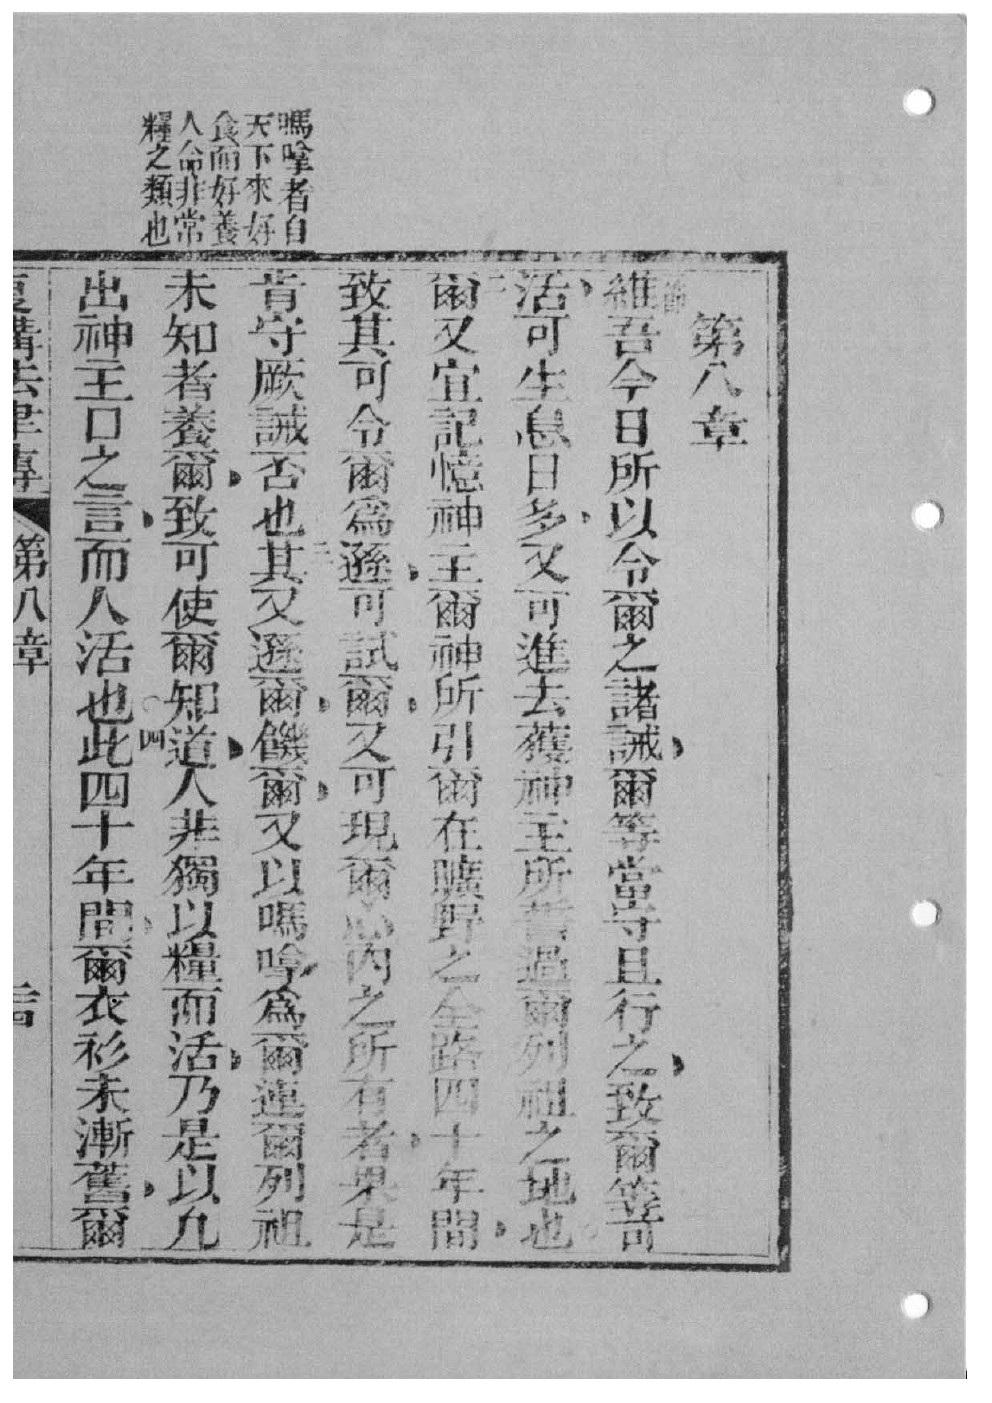 嗎唫者自
天下來好
食而好養
人命非常
糧之類也
第八章
維吾今日所以令爾之諸誡爾等當守且行之致爾等可
活可生息日多又可進去獲神主所誓過爾列祖之地也
爾又宜記憶神主爾神所引爾在曠野之全路四十年間
致其可令爾為遜可試爾又可現爾心內之所有者果是
肯守厥誡否也其又遜爾饑爾又以嗎唫為爾連爾列祖
未知者養爾致可使爾知道人非獨以糧而活乃是以凡
四
出神王口之言而人活也此四十年間爾衣衫未漸舊爾
復講法律傳 第八章